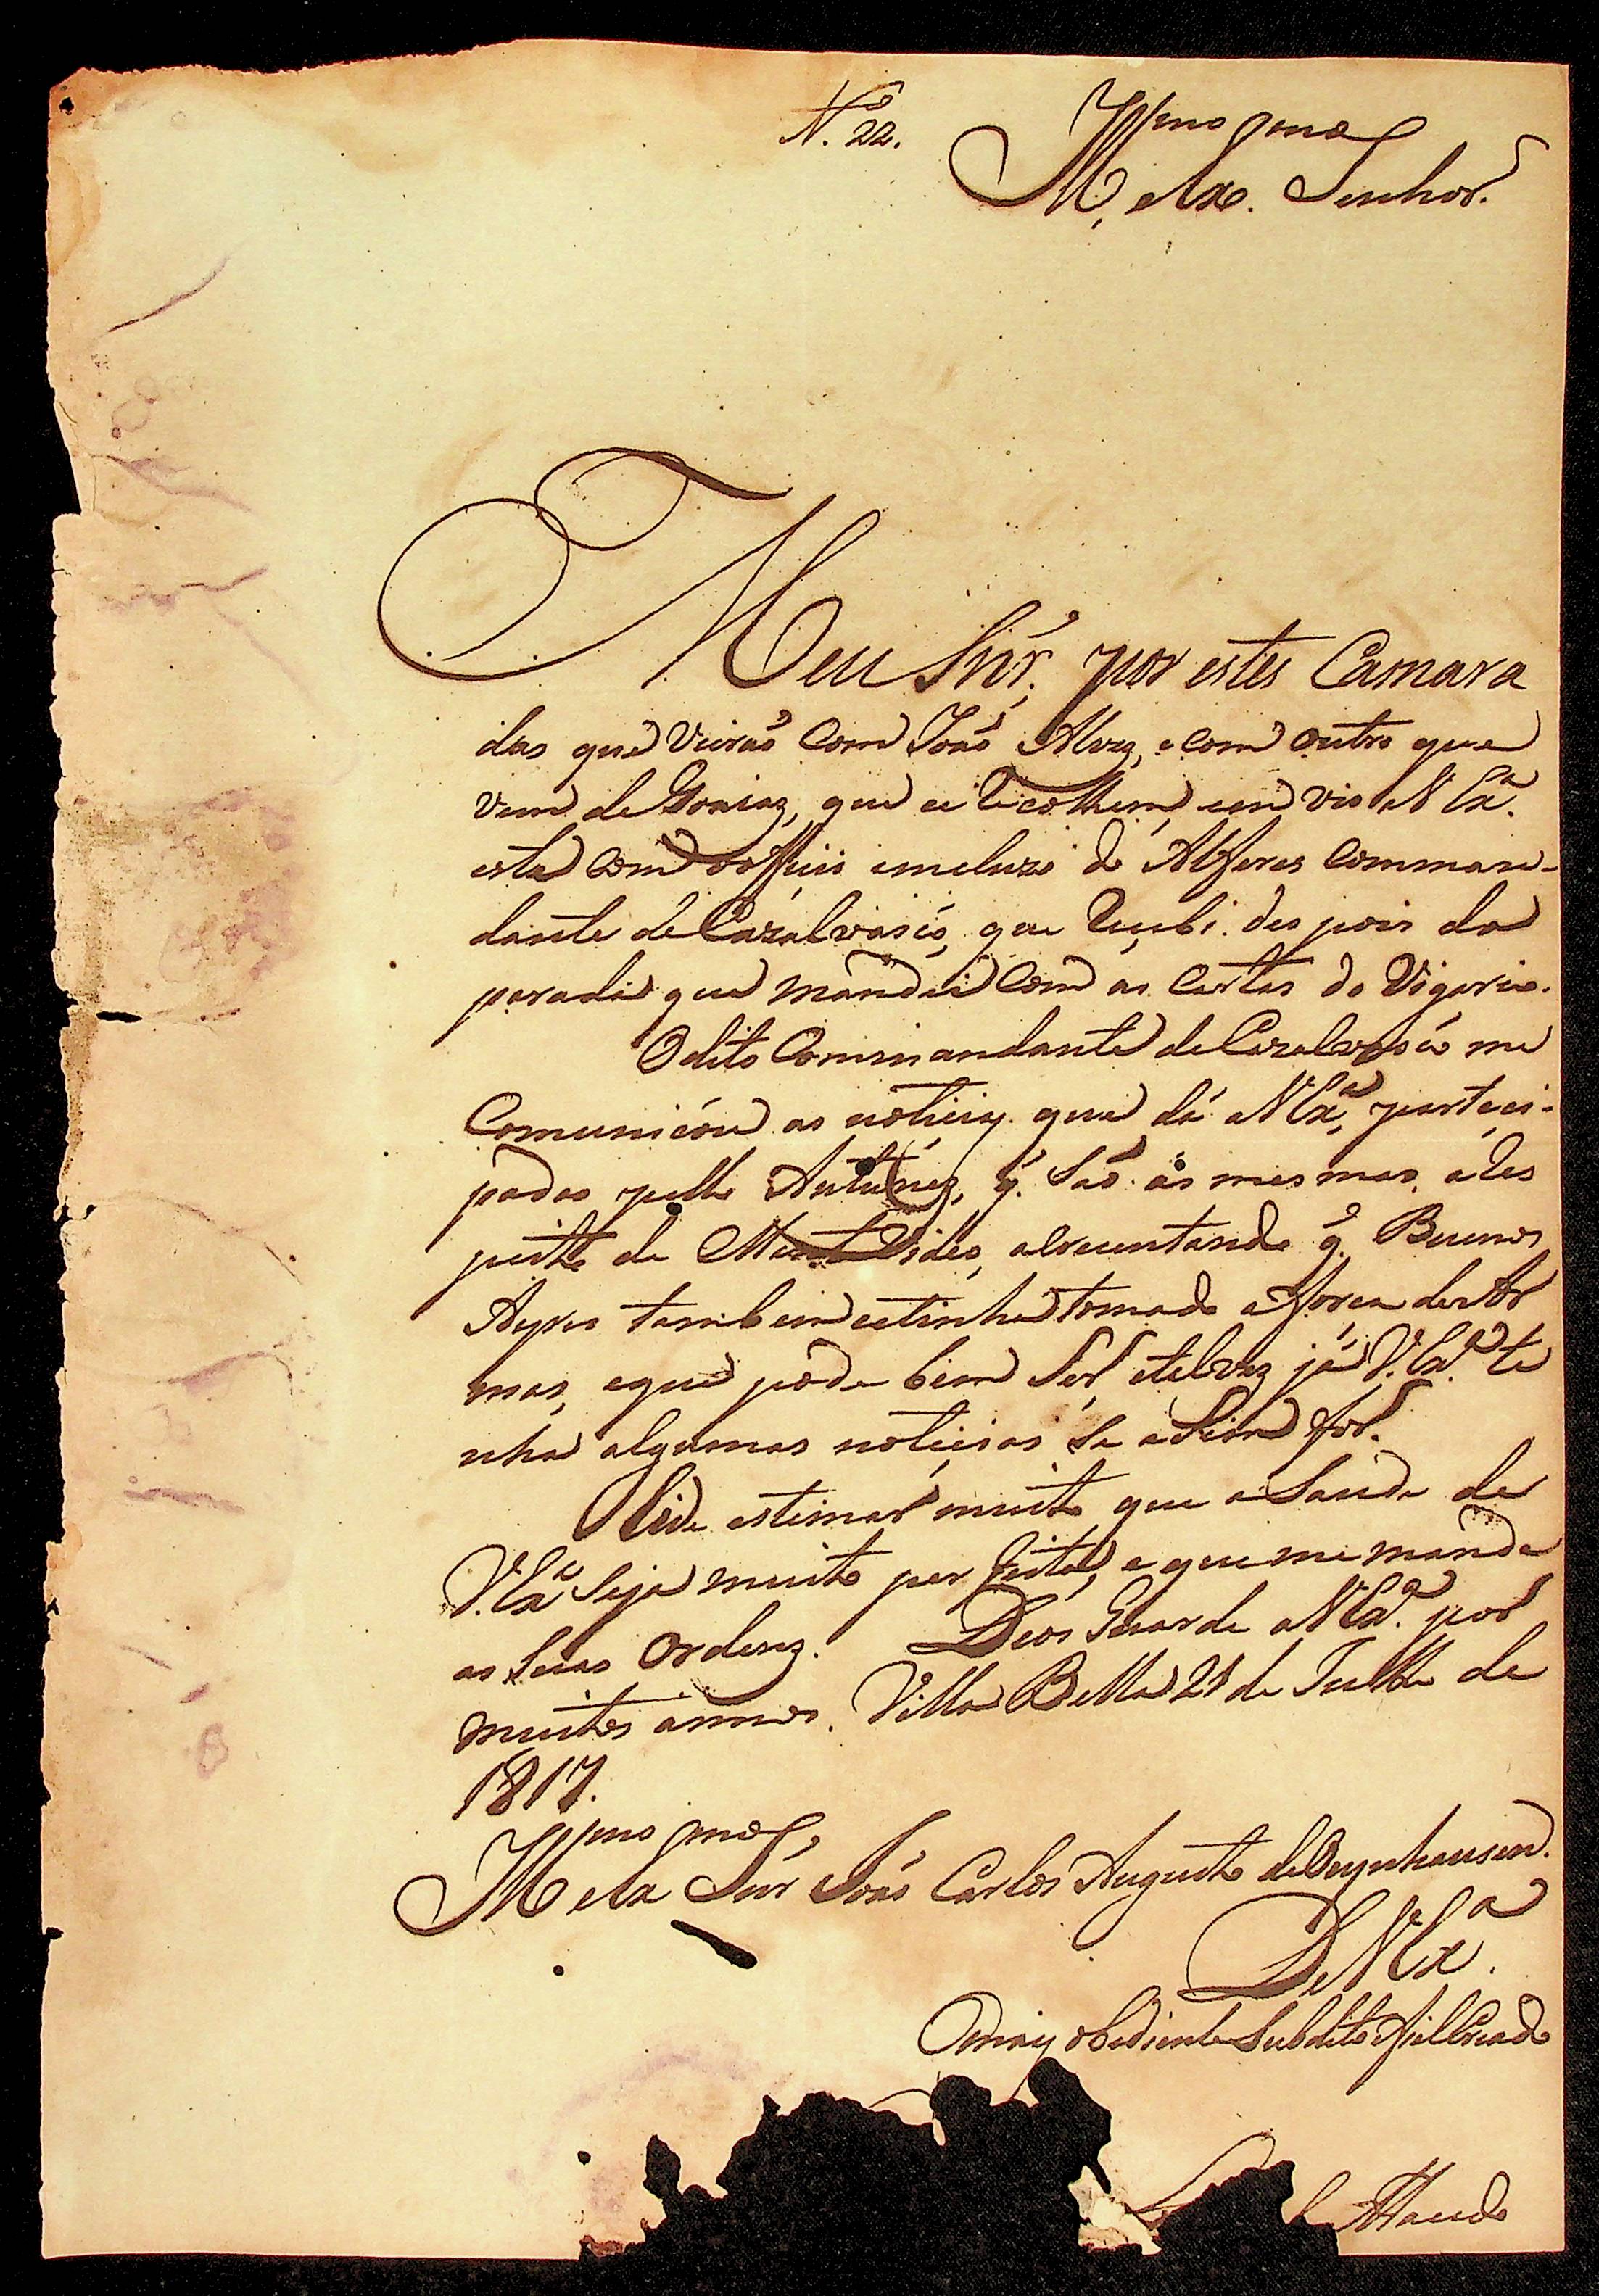 N.º 22.
Ill.mo e Ex.mo Senhor.
Meu Snr. por estes Camara
das que vieraõ com Joaõ Alvz, e com outro que
vem de Goaiaz, que se recolhem, em vio a V Ex.ª
esta com o officio incluzo do Alferes comman-
dante de Cazalvasco, que recebi des pois da
parada que mandei com as Cartas do Vigario.
O dito Commandante de Cazalvasco me
Comunicou as noticias que dá a V Ex.ª, parteci-
padas pello Antunez, q. saõ as mesmas, a res
peito de Mont Video, acrecentando q. Buenos
Ayres tambem se tinha tomado a força de Ar
mas, e que pode bem ser, e talvez já V. Ex.ª te
nha algumas noticias se a sim for.
Hide estimar muito que a Saude de
V. Ex.ª seja muito per feita, e que me mande
as suas ordenz. Deos Guarde a V Ex.ª por
muitos annos. Villa Bella 21 de Julho de
1817.
Ill.mo e Ex.mo Snr Joaõ Carlos Augusto de Oeynhausen.
De V Ex.ª
O mais obediente Subdito e fiel Creado